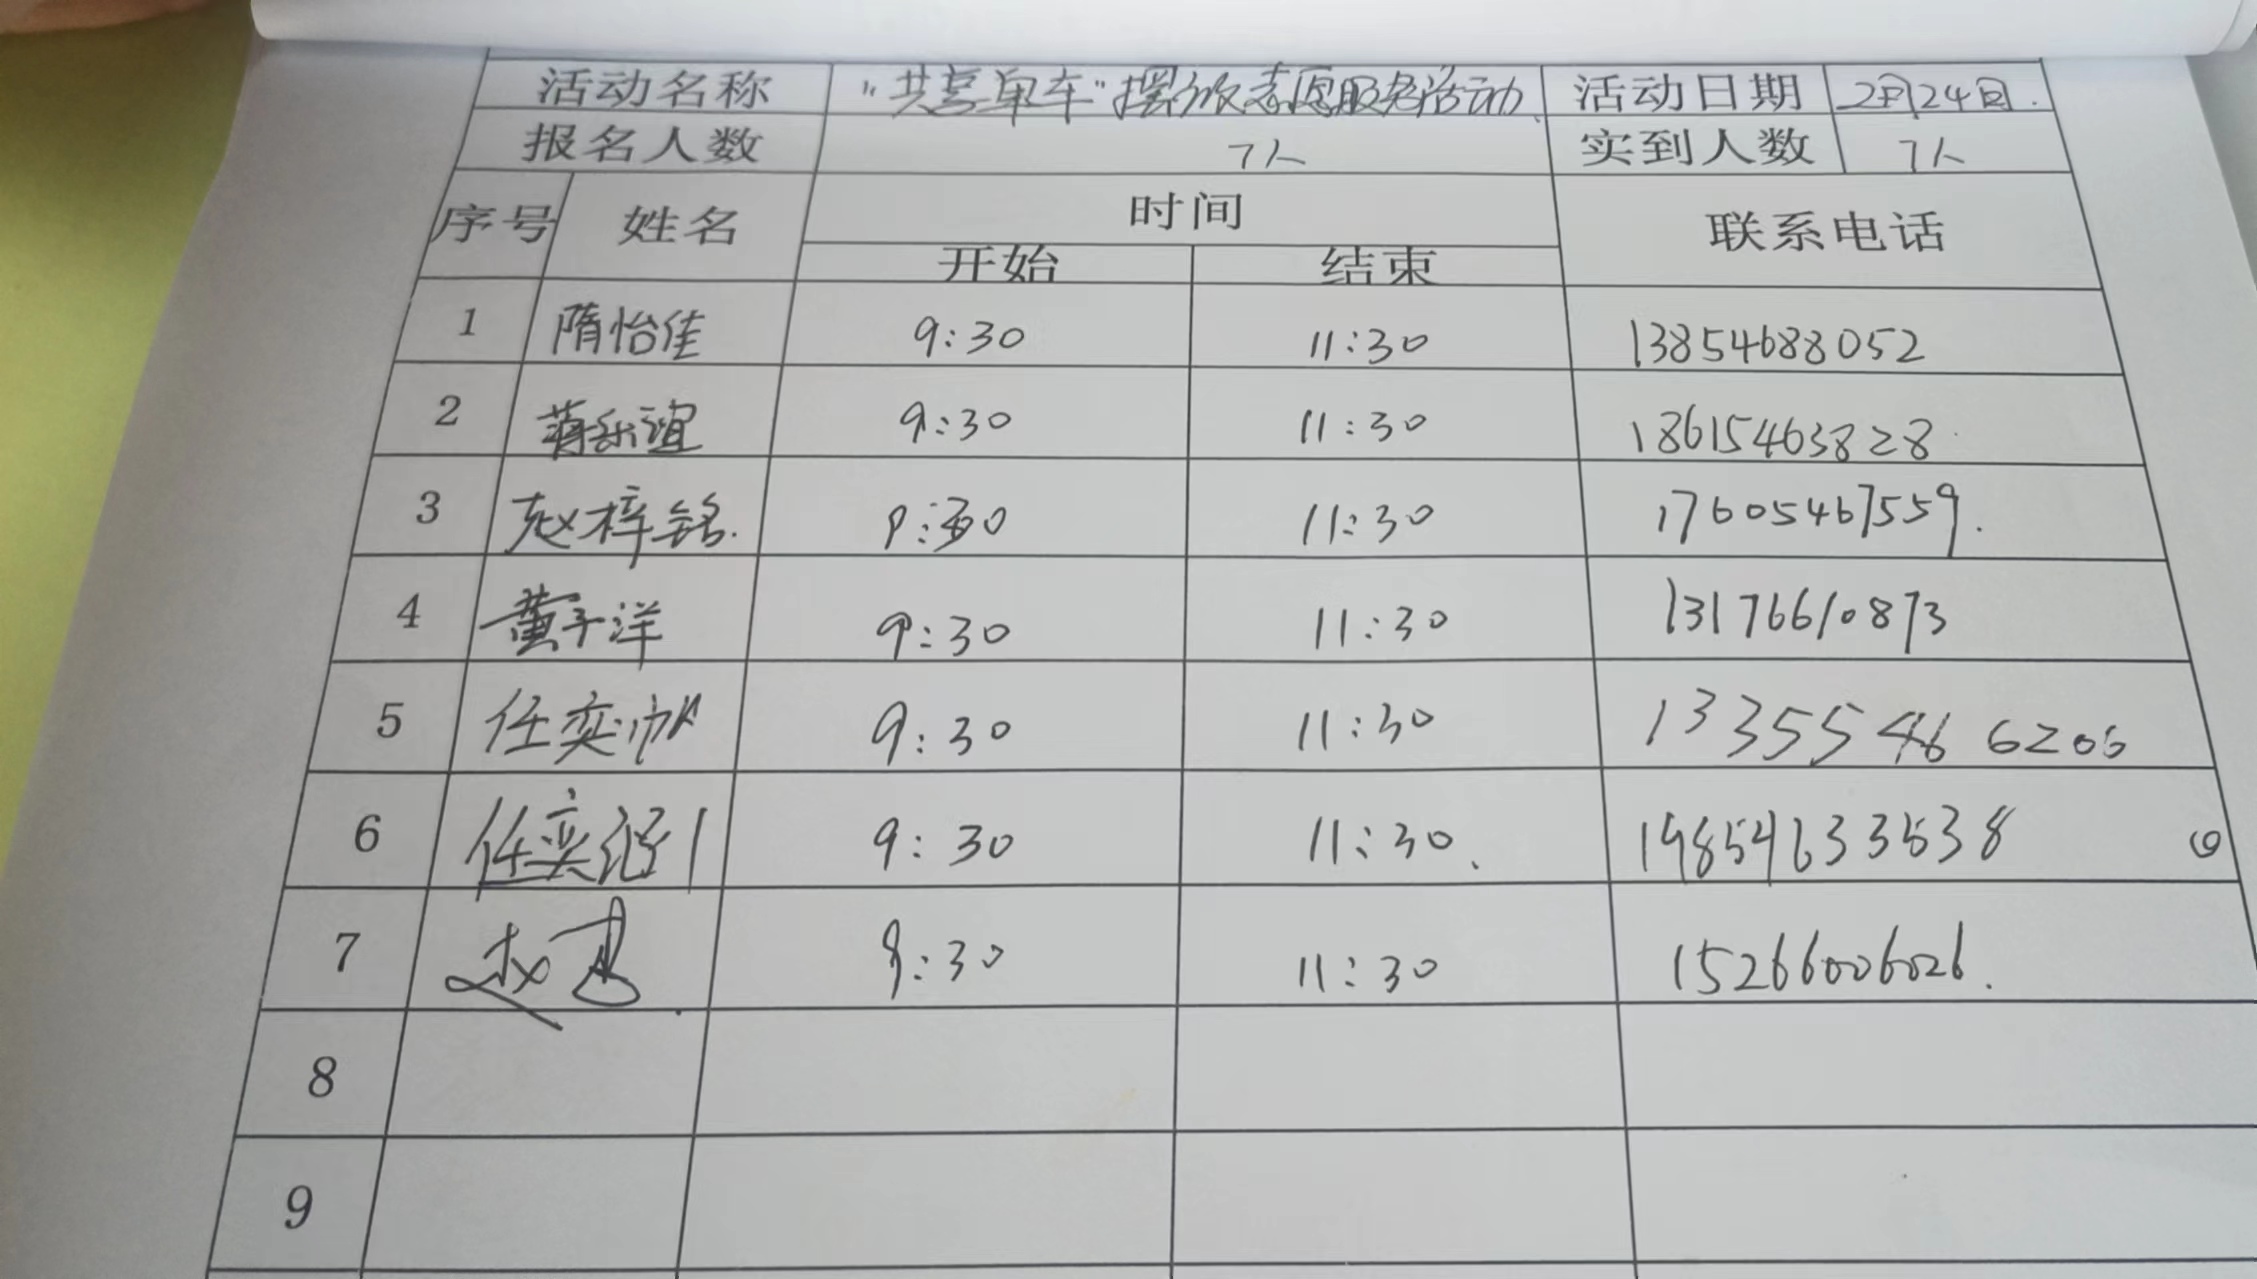 活动名称 "共享单车"摆放志愿服务活动 活动日期 2月24日.
报名人数 7人 实到人数 7人
序号 姓名 时间 联系电话
开始 结束
1 隋怡佳 9:30 11:30 13854688052
2 蒋乐谊 9:30 11:30 18615463828
3 赵梓铭. 9:30 11:30 17605467559.
4 董子洋 9:30 11:30 13176610873
5 任奕帆 9:30 11:30 13355466206
6 任奕 9:30 11:30.
7 赵 9:30 11:30 15266006026.
8
9